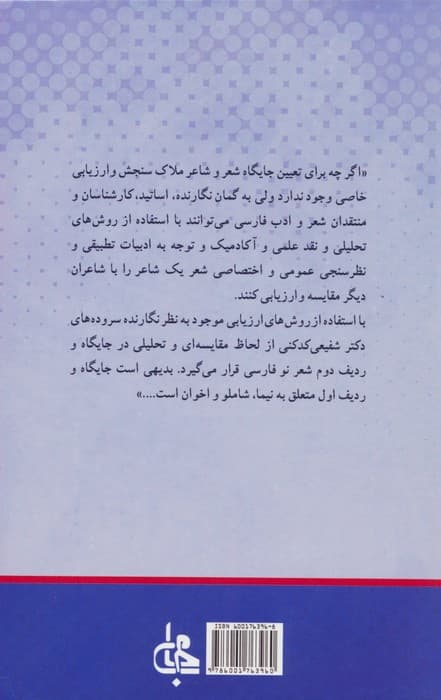 «اگر چه برای تعیین جایگاه شعر و شاعر ملاک سنجش و ارزیابی
خاصی وجود ندارد ولی به گمان نگارنده، اساتید، کارشناسان و
منتقدان شعر و ادب فارسی می‌توانند با استفاده از روش‌های
تحلیلی و نقد علمی و آکادمیک و توجه به ادبیات تطبیقی و
نظرسنجی عمومی و اختصاصی شعر یک شاعر را با شاعران
دیگر مقایسه و ارزیابی کنند.
با استفاده از روش‌های ارزیابی موجود به نظر نگارنده سروده‌های
دکتر شفیعی‌کدکنی از لحاظ مقایسه‌ای و تحلیلی در جایگاه و
ردیف دوم شعر نو فارسی قرار می‌گیرد. بدیهی است جایگاه و
ردیف اول متعلق به نیما، شاملو و اخوان است....»
ISBN 600176396-6
9 786001 763960